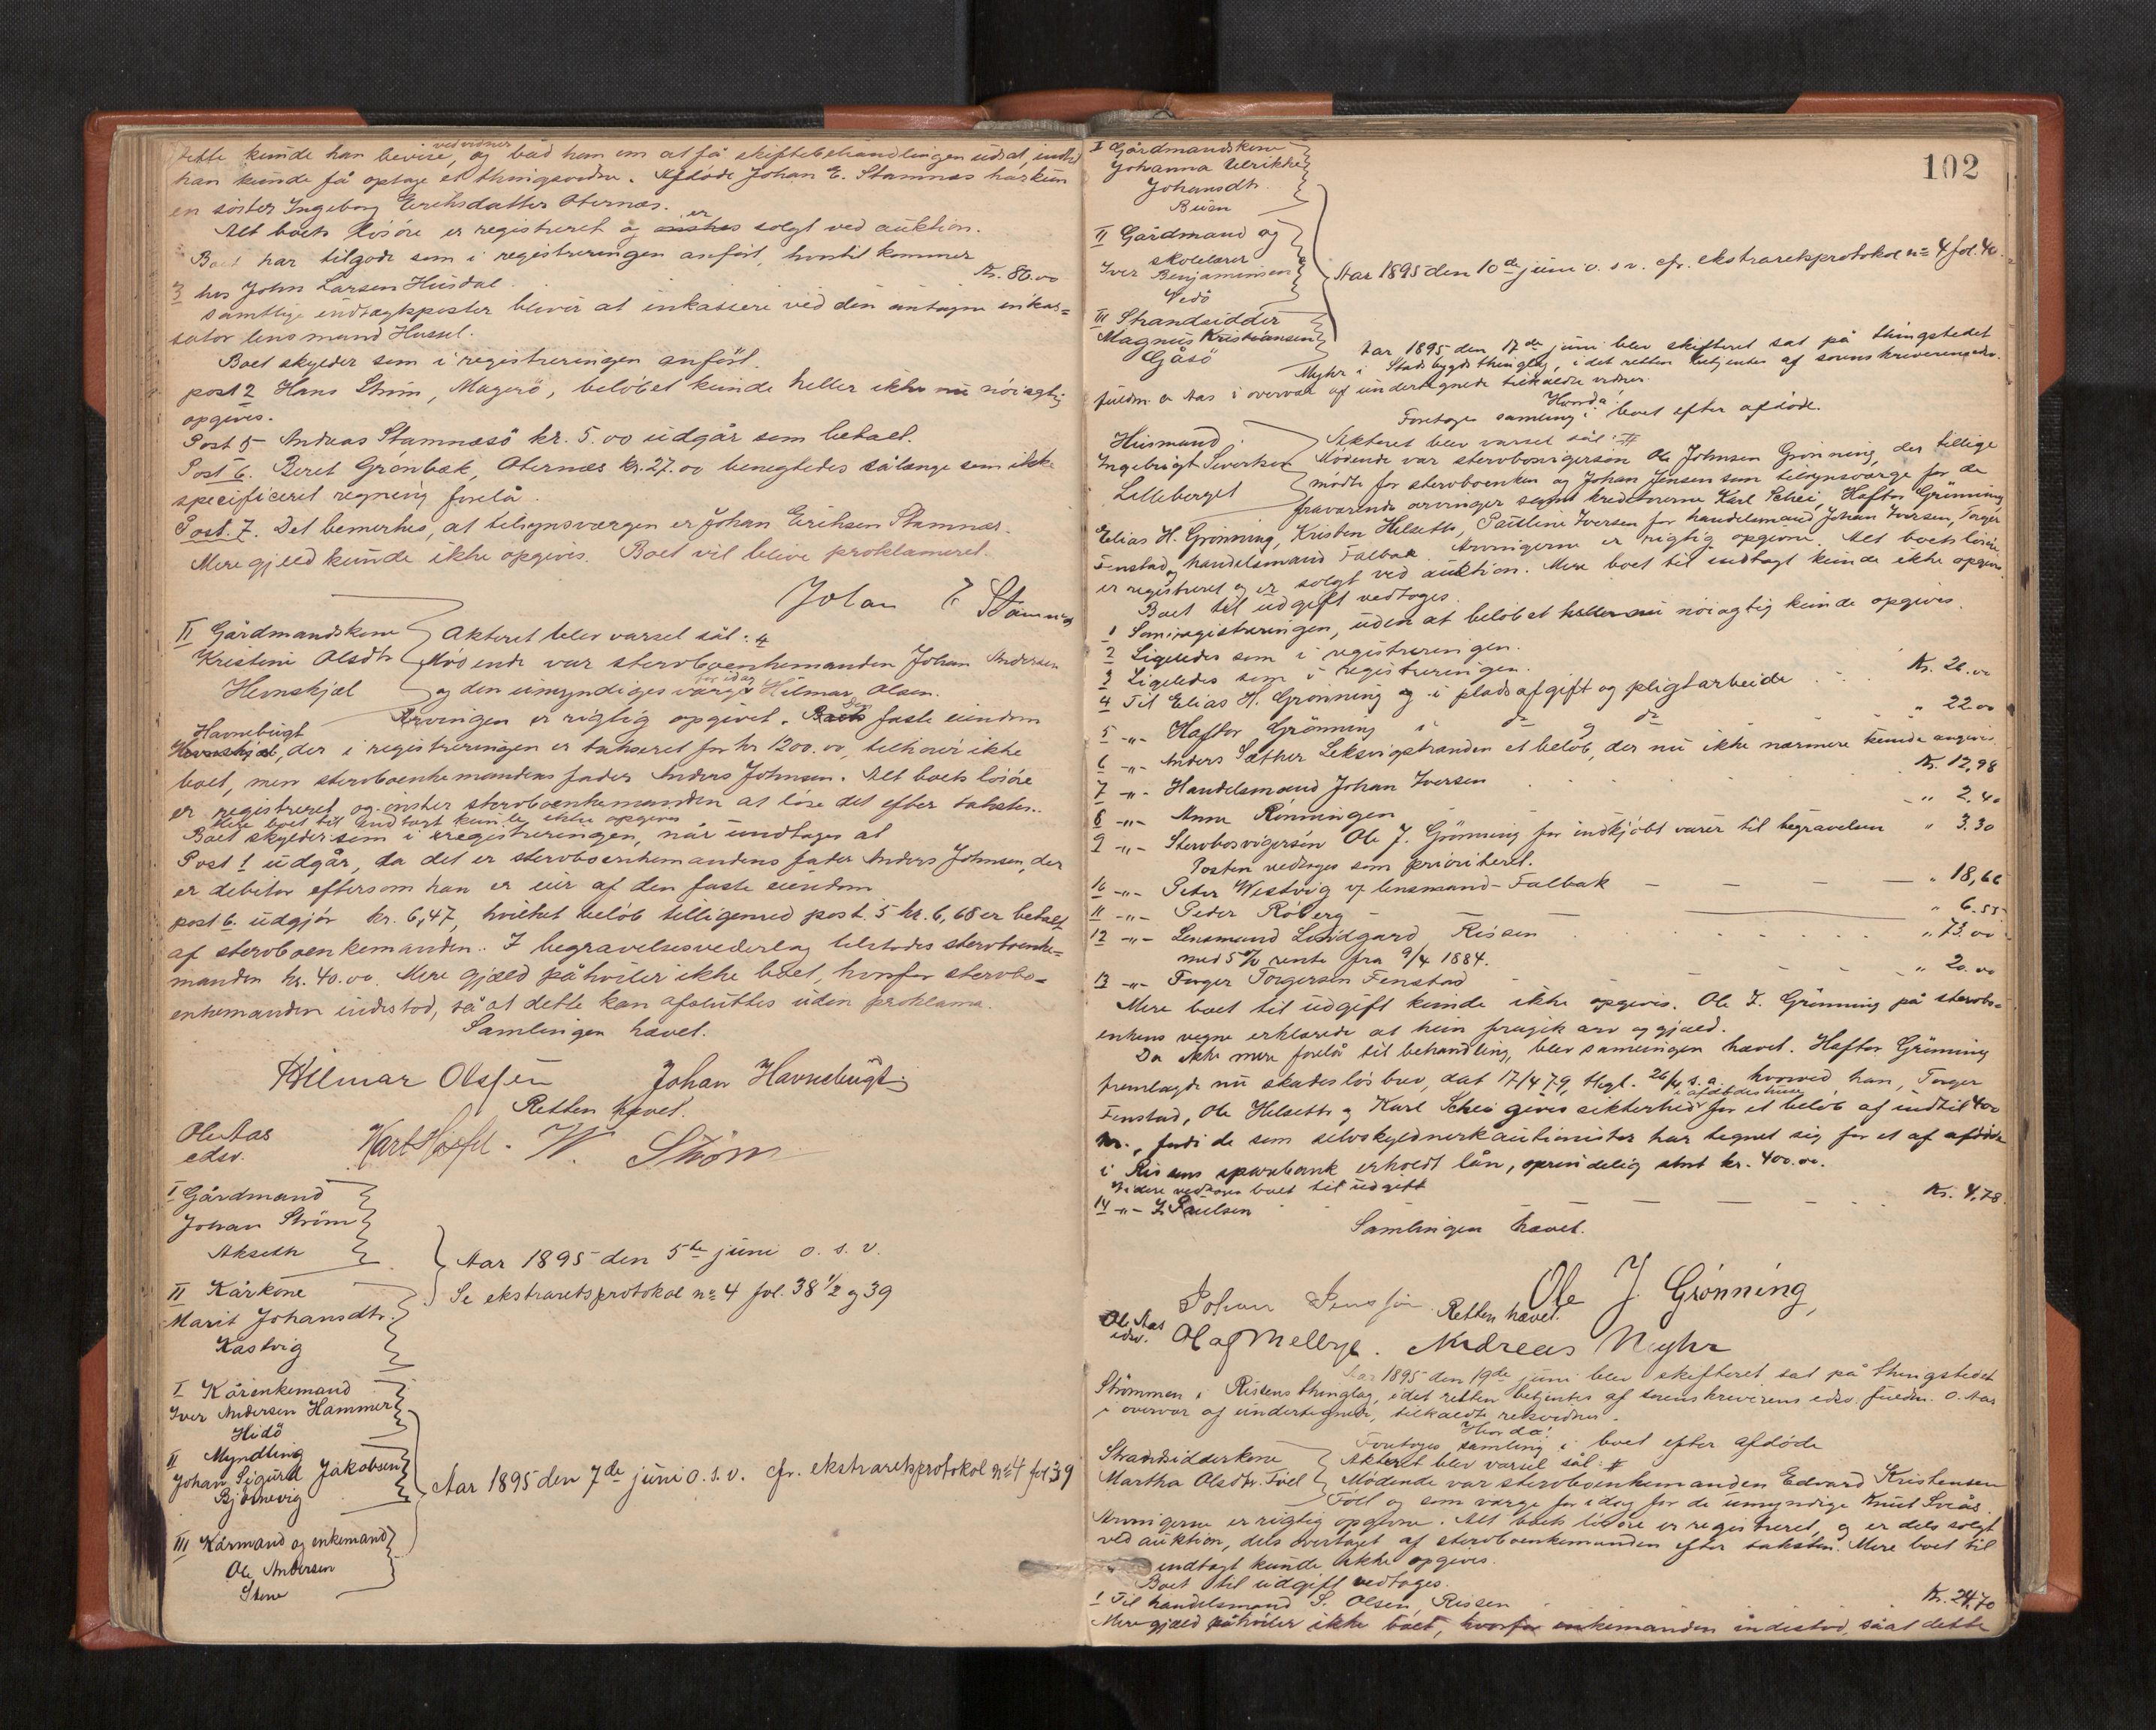 dette kunde han bevise, ved vidner og bad han om at få skiftebehandlingen udsat, indtil
han kunde få optage et thingsvidne. Afdøde Johan E. Stamnæs har kun
en søster Ingeborg Eriksdatter Oternæs.
Alt boets løsøre er registreret og er solgt ved auktion.
Boet har tilgode som i registreringen anført, hvortil kommer
3 hos John Larsen Husdal Kr. 80.00
samtlige indtægtsposter bliver at inkassere ved den antagne inkas=
sator lensmand Hassel.
Boet skylder som i registreringen anført.
post 2 Hans Strøm, Magerö, beløbet kunde heller ikke nu nöiagtig
opgives.
Post 5 Andreas Stamnæsö kr. 5.00 udgår som betalt.
Post 6. Beret Grönbæk, Oternæs kr. 27.00 benegtedes sålænge som ikke
specificeret regning forelå.
Post. 7. Det bemerkes, at tilsynsværgen er Johan Eriksen Stamnæs.
Mere gjeld kunde ikke opgives. Boet vil blive proklameret.
Johan E Stamnæs
II Gårdmandskone
Kristine Olsdtr
Hernskjæl
Akteret blev varsel sål: #
Mödende var stervboenkemanden Johan Andersen
og den umyndiges værge for idag Hilmar Olsen.
Arvingen er rigtig opgivet. Den faste eiendom
Havnebugt, der i registreringen er takseret for kr 1200.00, tilhører ikke
boet, men stervboenkemandens fader Anders Johnsen. Alt boets lösöre
er registreret og önsker stervboenkemanden at löse det efter taksten.
Mere boet til indtægt kunde ikke opgives
Boet skylder som i registreringen, når undtages at
Post 1 udgår, da det er stervboenkemandens fader Anders Johnsen, der
er debitor eftersom han er eier af den faste eiendom
post 6. udgjör kr. 6,47, hvilket beløb tilligemed post. 5 kr. 6,68 er betalt
af stervboenkemanden. I begravelsesvederlag tilstodes stervboenke=
manden kr. 40.00. Mere gjæld påhviler ikke boet, hvorfor stervbo=
enkemanden indestod, så at dette kan afsluttes uden proklama.
Samlingen hævet.
Hilmar Olsen Johan Havnebugt
Retten hævet.
Ole Aas
edsv. W. Strøm
I Gårdmand
Johan Ström
Akseth
II Kårkone
Marit Johansdtr.
Kastvig
Aar 1895 den 5te juni o. s. v.
Se ekstraretsprotokol no 4 fol. 38 1/2 og 39
I Kårenkemand
Iver Andersen Hammer
Hidö
II Myndling
Johan Sigurd Jakobsen
Bjørnevig
III Kårmand og enkemand
Ole Andersen
Stene
Aar 1895 den 7de juni o. s. v. cfr. ekstraretsprotokol no 4 fol 39
102
I Gårdmandskone
Johanna Ulrikke
Johansdtr.
Buan
II Gårdmand og
skolelærer
Iver Benjaminsen
Vedö
Aar 1895 den 10de juni o. s v. cfr. ekstraretsprotokol no 4 fol. 40.
III Strandsidder
Magnus Kristiansen
Gåsö
Aar 1895 den 17de juni blev skifteret sat på thingstedet
Myhr i Stadsbygds thinglag, idet retten betjentes af sorenskriverens edsv.
fuldm. O Aas i overvær af undertegnede tilkaldte vidner.
Hvorda!
Foretages samling i boet efter afdöde.
Husmand
Ingebrigt Sivertsen
Lilleberget
Akteret blev varsel sål: #
Mödende var stervbosvigersön Ole Johnsen Grönning, der tillige
mödte for stervboenken og Johan Jensen som tilsynsværge for de
fraværende arvinger samt kreditorerne Karl Schei, Haftor Grönning
Elias H. Grønning, Kristen Helseth, Pauline Iversen for handelsmand Johan Iversen, Torger
Fenstad og handelsmand Falbak. Arvingerne er rigtig opgivne. Alt boets lösöre
er registreret og er solgt ved auktion. Mere boet til indtægt kunde ikke opgives.
Boet til udgift vedtoges.
1 Som i registreringen, uden at beløbet heller nu nöiagtig kunde opgives.
2 Ligeledes som i registreringen.
3 Ligeledes som i registreringen.
4 Til Elias H. Grønning i pladsafgift og pligtarbeide Kr. 26.00
5 -„- Haftor Grönning i do og do „ 22.00
6 -„- Anders Sæther Leksvigstranden et beløb, der nu ikke nærmere kunde angives.
7 -„- Handelsmand Johan Iversen Kr. 12,98
8 -„- Anna Rönningen „ 2,40
9 -„- Stervbosvigersön Ole J. Grønning for indkjöbt varer til begravelsen „ 3.30
Posten vedtoges som prioriteret.
10 -„- Peter Westvig v/ lensmand Falbak „ 18,66
11 -„- Peder Röberg „ 6.55
12 -„- Lensmand Lindgard Rissen „ 73.00
med 5% rente fra 9/4 1884.
13 -„- Torger Torgersen Fenstad „ 20.00
Mere boet til udgift kunde ikke opgives. Ole J. Grönning på stervbo=
enkens vegne erklærede at hun fragik arv og gjæld.
Da ikke mere forelå til behandling, blev samlingen hævet. Haftor Grønning
fremlagde nu skadeslösbrev, dat 17/4 79, thgl. 26/4 s. a. hvorved han, Torger
Fenstad, Ole Helseth og Karl Schei gives sikkerhed i afdödes huse for et beløb af indtil 400
kr., fordi de som selvskyldnerkautionister har tegnet sig for et af afdöde
i Rissens sparebank erholdt lån, oprindelig stort kr. 400.00.
Videre vedtoges boet til udgift
14 -„- Paulsen Kr. 4,78.
Samlingen hævet.
Johan Jensen Ole J. Grønning
Retten hævet.
Ole Aas
edsv. Olaf Mellbye. Andreas Myhr
Aar 1895 den 19de juni blev skifteret sat på thingstedet
Strömmen i Rissens thinglag, idet retten betjentes af sorenskriverens edsv. fuldm. O. Aas
i overvær af undertegnede, tilkaldte retsvidner.
Hvorda!
Foretoges samling i boet efter afdöde
Strandsidderkone
Martha Olsdtr. Föll
Akteret blev varsel sål: #
Mödende var stervboenkemanden Edvard Kristensen
Föll og som værge for idag for de umyndige Knut Sveås.
Arvingerne er rigtig opgivne. Alt boets lösöre er registreret, og er dels solgt
ved auktion, dels overtaget af stervboenkemanden efter taksten. Mere boet til
indtægt kunde ikke opgives.
Boet til udgift vedtoges.
1 Til handelsmand S. Olsen, Rissen Kr. 24.70
Mere gjæld påhviler ikke boet, hvorfor enkemanden indestod, såat dette